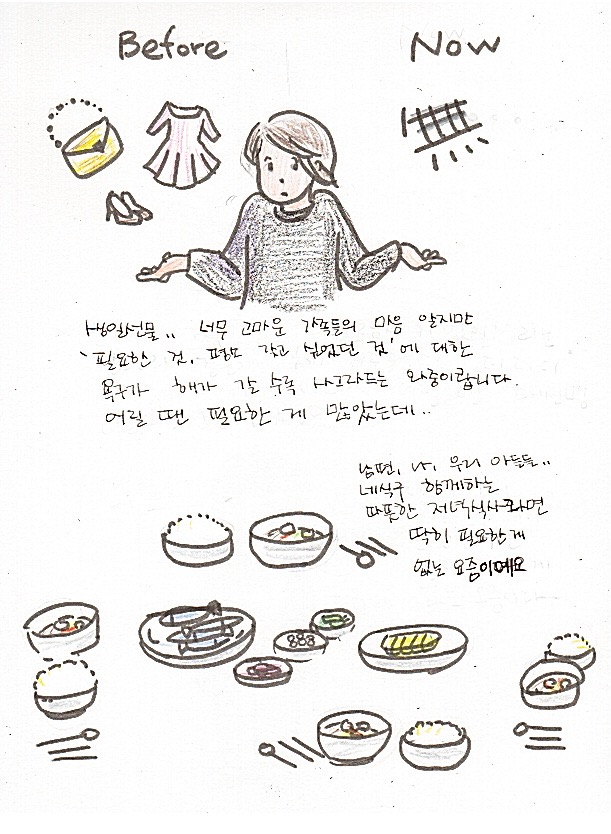 Before
Now
생일선물.. 너무 고마운 가족들의 마음 알지만
'필요한 것, 평소 갖고 싶었던 것'에 대한
욕구가 해가 갈 수록 사그라드는 와중이랍니다.
어릴 땐 필요한 게 많았는데..
남편, 나, 우리 아들들..
네식구 함께하는
따뜻한 저녁식사라면
딱히 필요한게
없는 요즘이에요